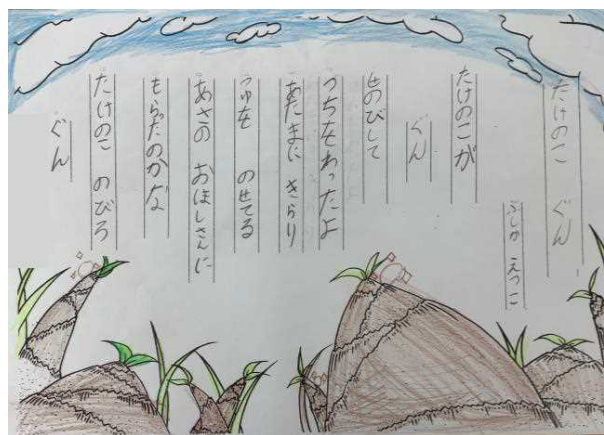 たけのこ ぐん
ぶしか えつこ
たけのこが
ぐん
せのびして
つちをわったよ
あたまに きらり
つゆを のせてる
あさの おほしさんに
もらったのかな
たけのこ のびろ
ぐん